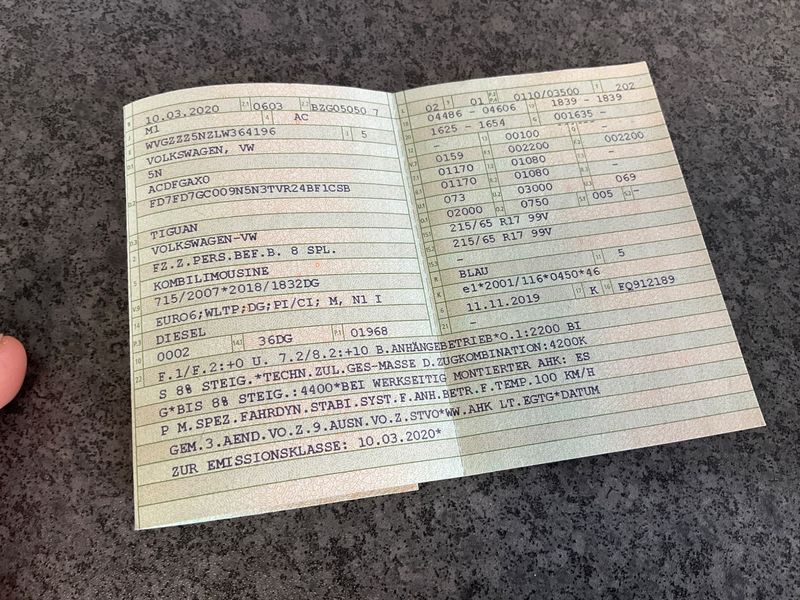 10.03.2020 2.1 0603 2.2 BZG05050 7
M1 AC
WVGZZZ5NZLW364196 5
VOLKSWAGEN, VW
5N
ACDFGAX0
FD7FD7GC009N5N3TVR24BF1CSB
TIGUAN
VOLKSWAGEN-VW
FZ.Z.PERS.BEF.B. 8 SPL.
KOMBILIMOUSINE
715/2007*2018/1832DG
EURO6;WLTP;DG;PI/CI; M, N1 I
DIESEL
0002 36DG P.1 01968
02 01 0110/03500 202
04486 - 04606 1839 - 1839
1625 - 1654 001635 -
- 00100
0159 002200 002200
01170 01080 -
01170 01080
073 03000 069
02000 0750 005 -
215/65 R17 99V
215/65 R17 99V
-
BLAU 5
e1*2001/116*0450*46
11.11.2019 K FQ912189
-
22 F.1/F.2:+0 U. 7.2/8.2:+10 B.ANHÄNGEBETRIEB*O.1:2200 BI
S 8% STEIG.*TECHN.ZUL.GES-MASSE D.ZUGKOMBINATION:4200K
G*BIS 8% STEIG.:4400*BEI WERKSEITIG MONTIERTER AHK: ES
P M.SPEZ.FAHRDYN.STABI.SYST.F.ANH.BETR.F.TEMP.100 KM/H
GEM.3.AEND.VO.Z.9.AUSN.VO.Z.STVO*WW.AHK LT.EGTG*DATUM
ZUR EMISSIONSKLASSE: 10.03.2020*